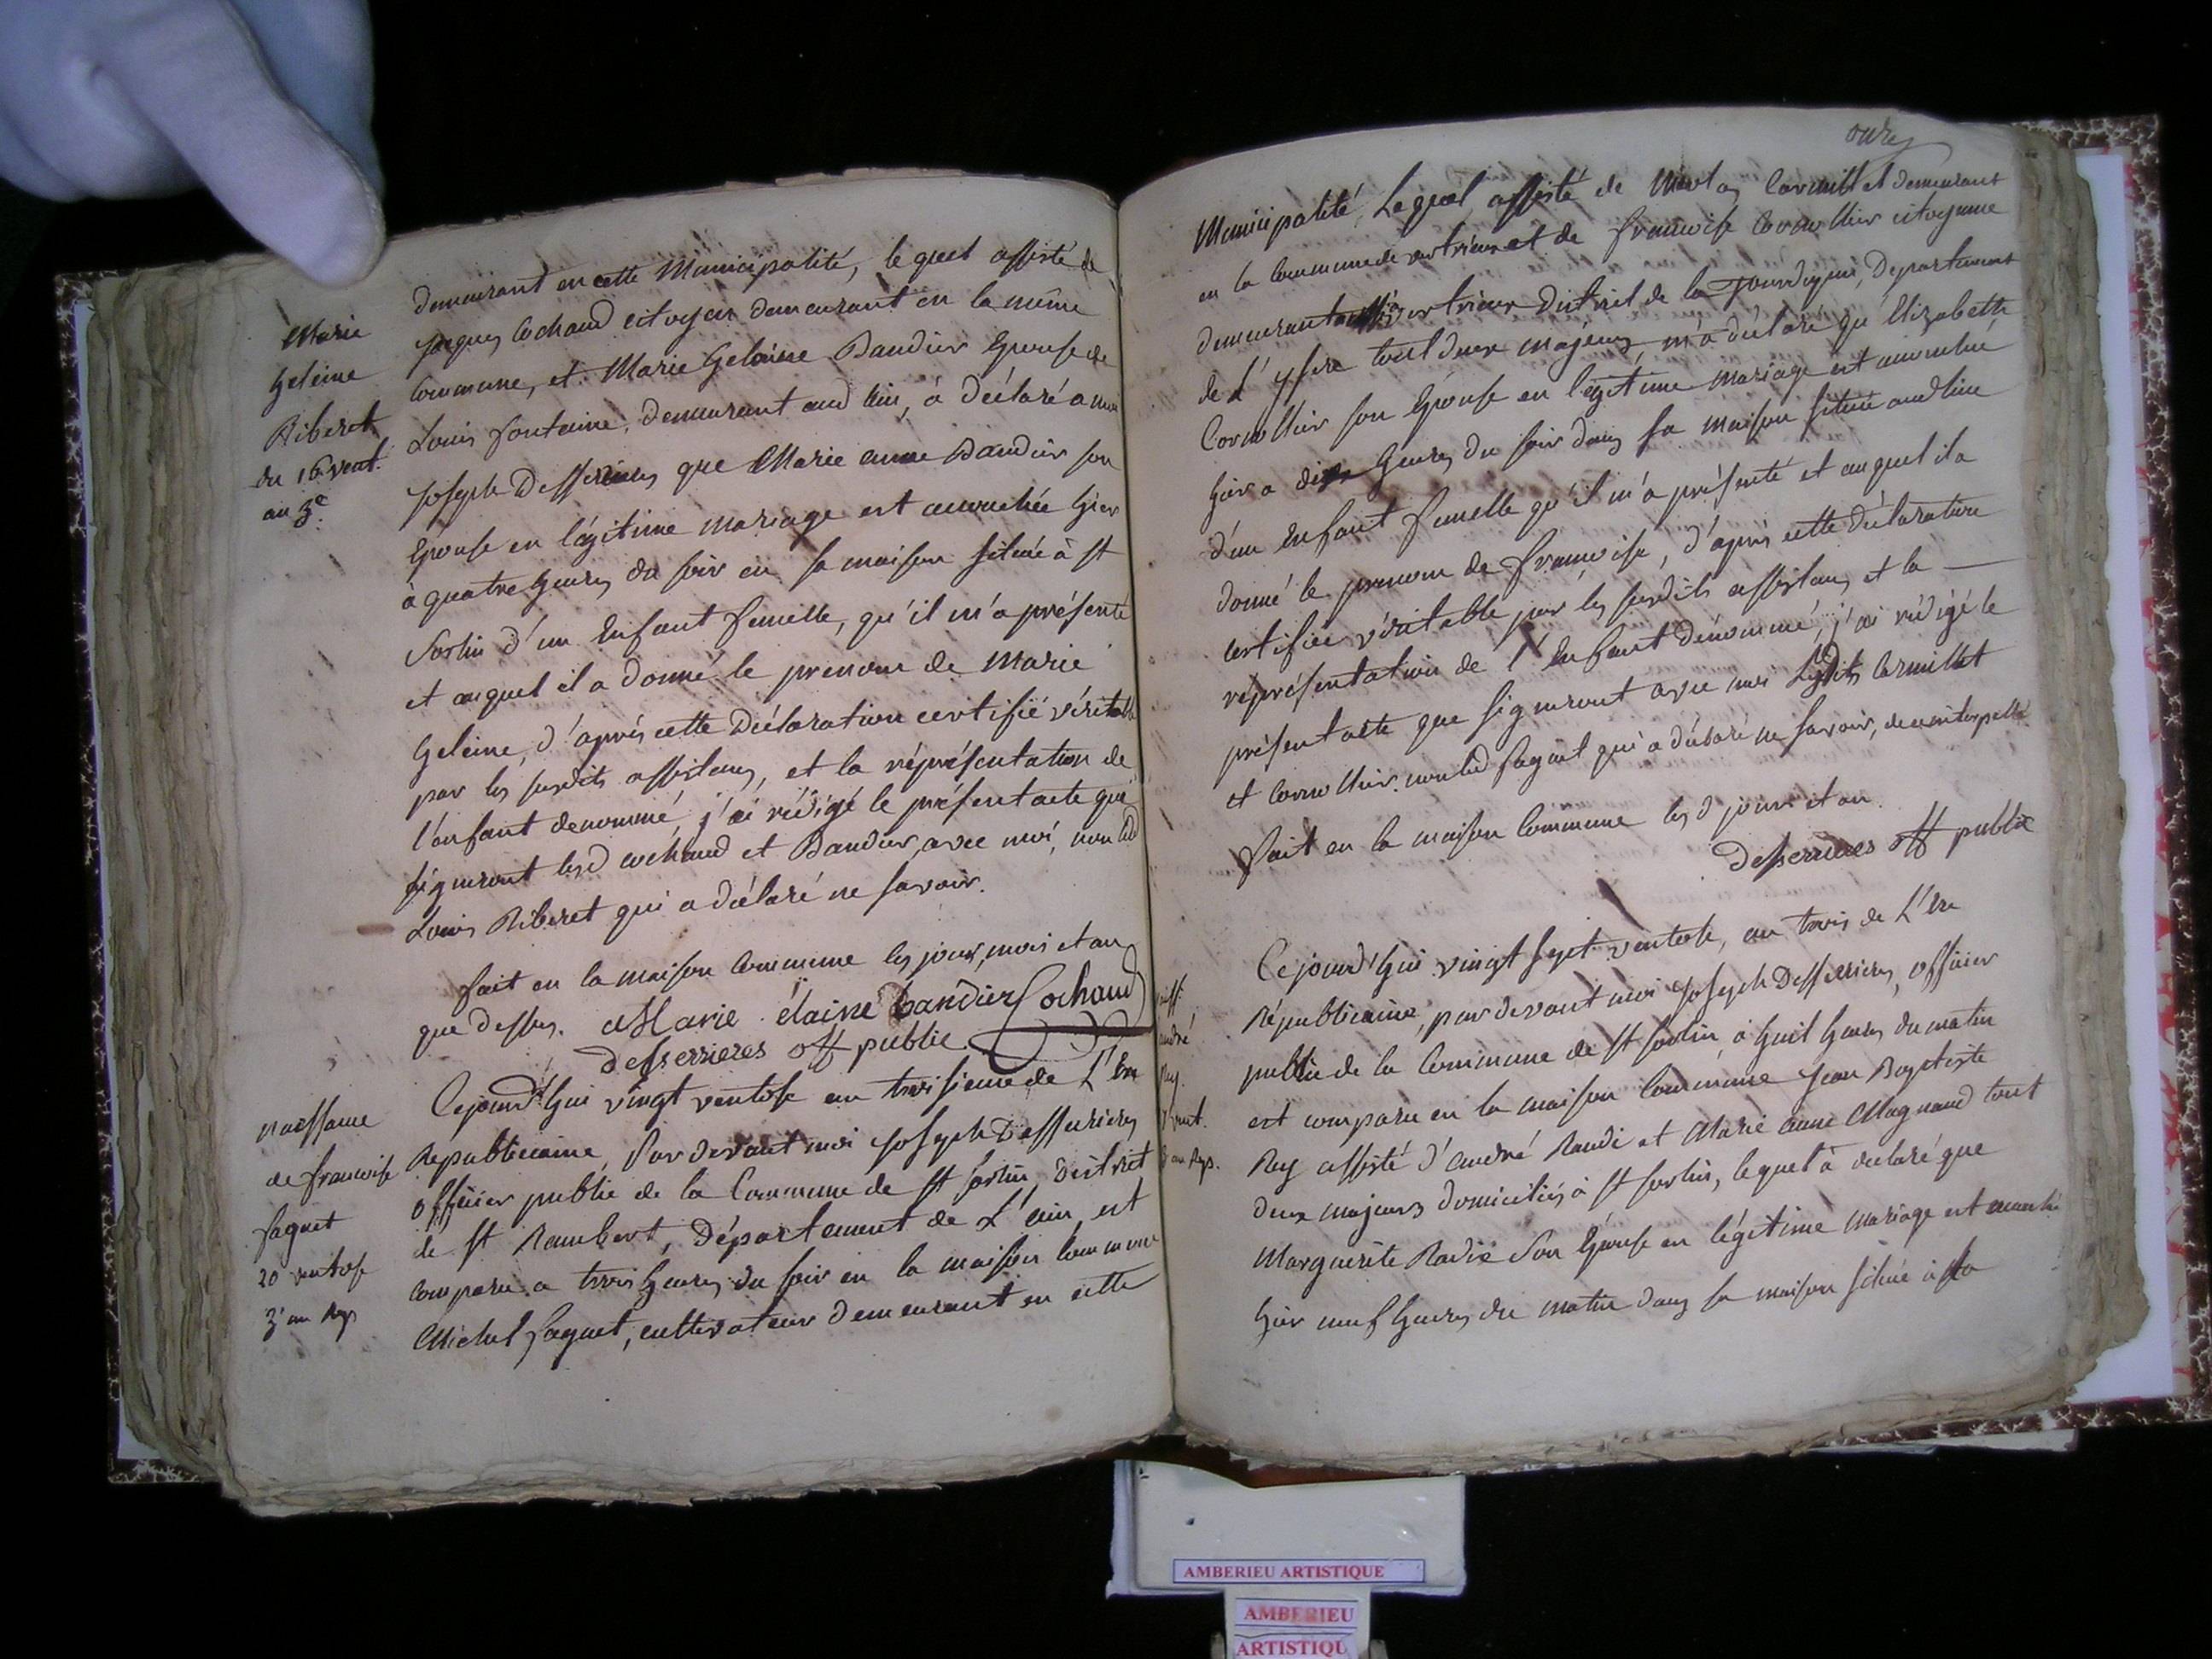 Marie
heleine
Riberet
du 16 vent.
an 3e.
demeurant en cette Municipalité, lequel assisté de
jacques Cochaud citoyen demeurant en la même
Commune, et Marie heleine Bandier Epouse de
Louis fontaine, demeurant aud lieu, à déclaré a moi
joseph Desserrieres que Marie anne Bandier son
Epouse en légitime mariage est accouchée hier
à quatre heures du soir en sa maison située à st
Sorlin d'un Enfant femelle, qu'il m'a présenté
et auquel il a donné le prenom de Marie
heleine, d'après cette Déclaration certifié véritable
par les susdits assistans, et la réprésentation de
l'enfant denommé j'ai rédigé le présent acte que
signeront lesd cochaud et Bandier avec moi, non led
Louis Riberet qui a déclaré ne savoir.
fait en la maison Commune les jour, mois et an
que dessus. Marie élaine bandier Cochaud
desserrieres off public
naissance
de francoise
faguet
20 ventose
3e an Rep
Cejourd'hui vingt ventose an troisieme de L'Ere
Republicaine, Pardevant moi joseph Desserrieres
officier public de la Commune de st sorlin, District
de st Rambert, Département de L'ain, est
comparu a trois heures du soir en la maison Commune
Michel faguet, cultivateur demeurant en cette
onze
Municipalité, Lequel assisté de Carmillet demeurant
en la Commune de vertrieux et de francoise Cornollier citoyenne
demeurant aussi à vertrieux District de la Tourdupin, Département
de L'ysere tout deux majeurs, m'a déclaré qu'Elizabette
Cornollier son Epouse en légitime mariage est accouchée
hier a dix heures du soir dans sa maison située audlieu
d'un Enfant femelle qu'il m'a présenté et auquel il a
donné le prenom de francoise, d'après cette déclaration
certifiée véritable par les susdits assistans et la
réprésentation de l'Enfant dénommé, j'ai rédigé le
présent acte que signeront avec moi Lesdits Carmillet
et Cornollier, non led faguet qui a déclaré ne savoir, de ce interpellé
fait en la maison Commune les d jours et an.
desserrieres off public
naiss.
andré
Rey.
vent.
3 an Rep.
Cejourd'hui vingt sept ventose, an trois de L'Ere
Républicaine, pardevant moi Joseph Desserrieres, officier
public de la Commune de st sorlin, à huit heures du matin
est comparu en la maison Commune Jean Baptiste
Rey assisté d'andré Ravdi et Marie anne Magnand tout
deux majeurs domiciliés à st sorlin, lequel à declaré que
Marguerite Ravdi Son Epouse en légitime mariage est accouchée
hier neuf heures du matin dans sa maison située à